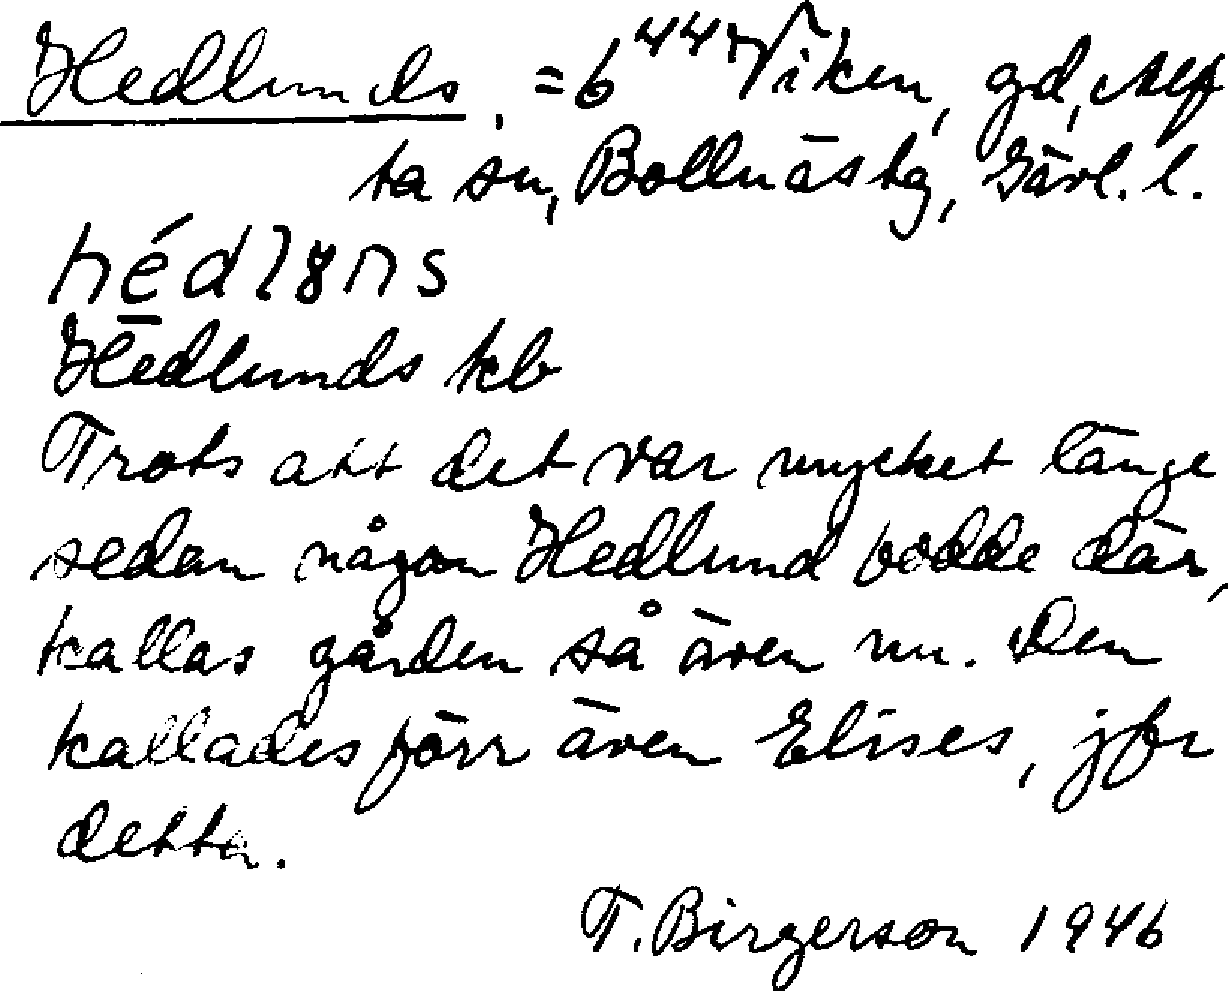 Hedlunds, =6⁴⁴ Viken, gd, Alf
ta sn, Bollnäs tg, Gävl. l.
hédlɤns
Hedlunds kb
Trots att det var mycket länge
sedan någon Hedlund bodde där,
kallas gården så även nu. Den
kallades förr även Elises, jfr
detta.
T. Birgerson 1946